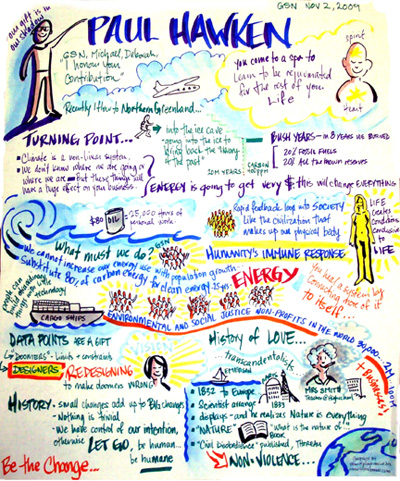 GSN NOV 2, 2009
our gift is in
our shadow
PAUL HAWKEN
GSN, Michael, Deborah
"I honour your
Contribution"
Recently I flew to Northern Greenland...
you come to a spa to
learn to be rejuvenated
for the rest of your
Life
spirit
heart
TURNING POINT...
Climate is a non-linear system.
We don't know where we are going or
where we are — But these things will
have a huge effect on your business.
into the ice cave
going into the ice to
bring back the theory
of the past
20M YEARS
CARBON
BUSH YEARS — in 8 YEARS WE BURNED
20% FOSSIL FUELS
20% ALL the known reserves
ENERGY is going to get very $: this will change EVERYTHING
$80
OIL
25,000 hours of
personal work
Rapid feedback loop into SOCIETY
Like the civilization that
makes up our physical body
LIFE
creates
conditions
conducive
to LIFE
What must we do? GSN
We cannot increase our energy use with population growth
Substitute 80% of carbon energy to clean energy 25 yrs.
HUMANITY'S IMMUNE RESPONSE
ENERGY
technology
CARGO SHIPS
ENVIRONMENTAL AND SOCIAL JUSTICE NON-PROFITS IN THE WORLD
to itself...
DATA POINTS ARE A GIFT
"DOOMERS" - Limits + constraints
DESIGNERS
REDESIGNING
to make doomers WRONG
VISION
HISTORY - small changes add up to BIG changes
- Nothing is trivial
- We have control of our intention,
otherwise LET GO, be human...
be humane
Be the Change...
History of LOVE...
transcendentalist
EMERSON
MRS. SMITH
1832 to Europe
Scientist arrange
displays - and he realizes Nature is everything
"NATURE"
BOOK
"what is the nature of"
"Civil Disobedience" published, Thoreau
NON-VIOLENCE...